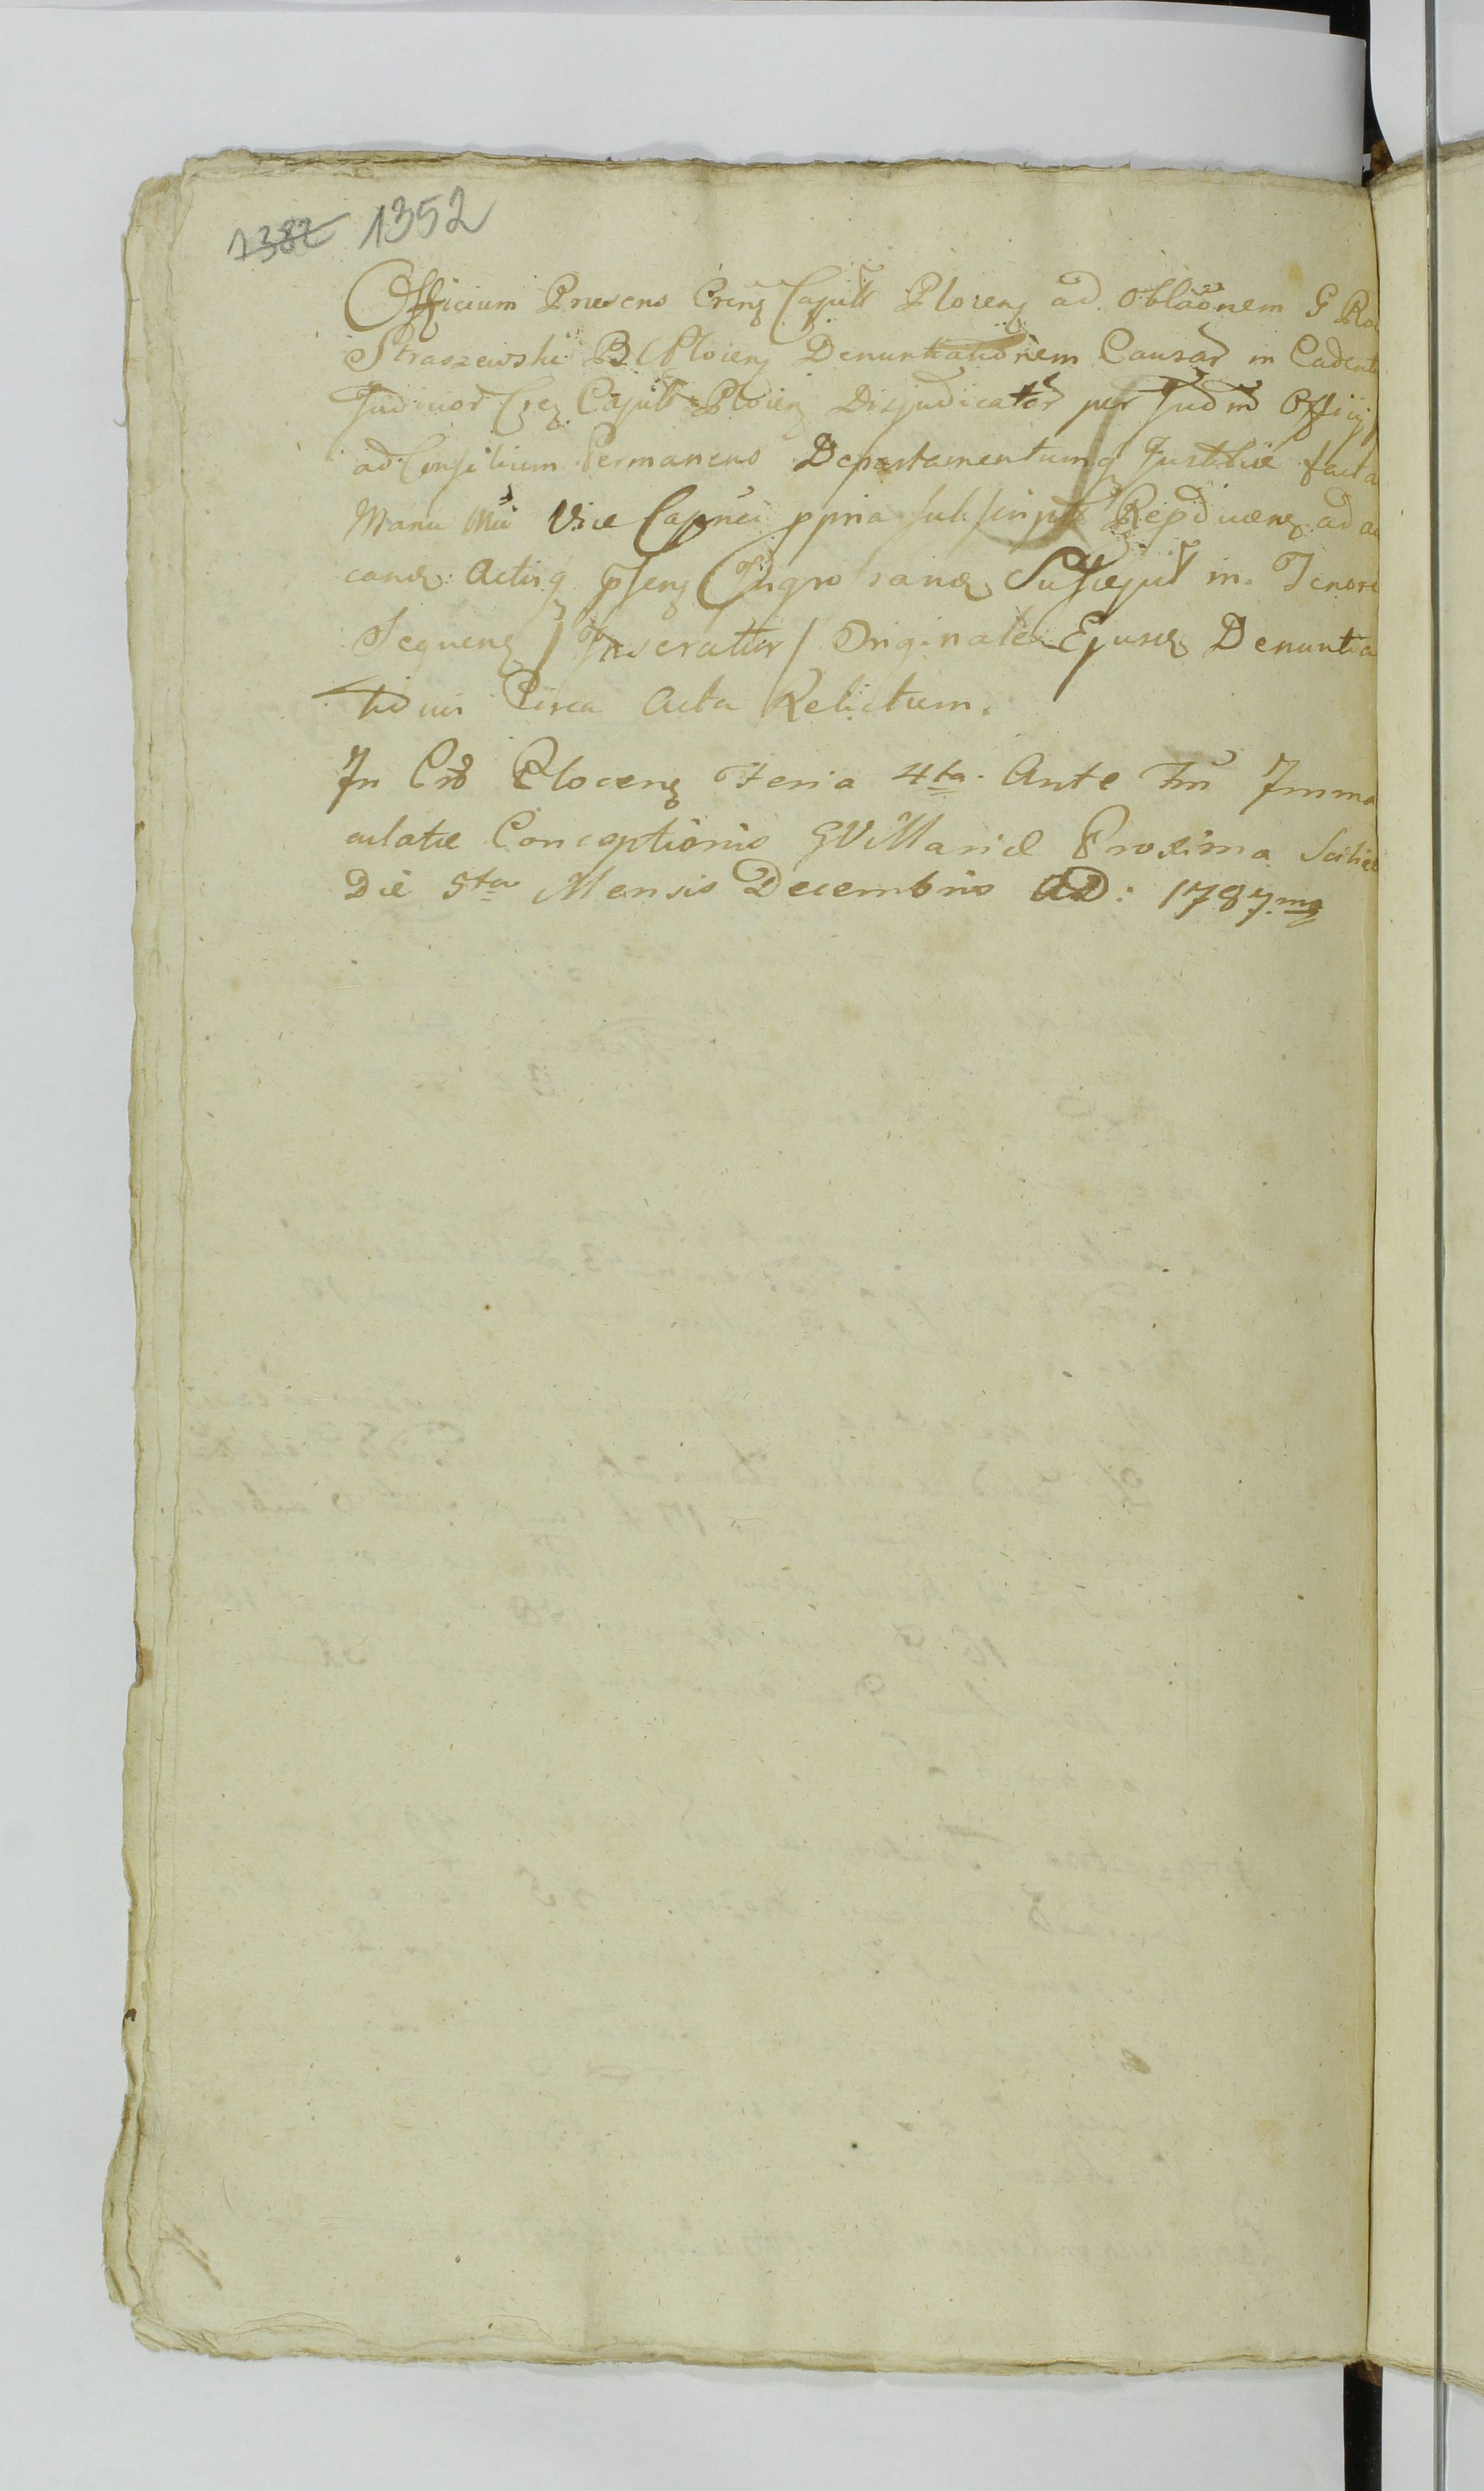 1382 1352
Officium Præsens Crenz Capitt Plocenz ad Oblãonem G Ro
Straszewski B C Plocienz Denuntiationem Causar in Cadent
Judicior Crez Capitt Plocienz Disjudicator per Judm Officij
ad Consilium Permanens Departamentumq Justitiæ facta
Manu Mci Vice Capnei ppria subscript Repducenz ad a
canz Actisq psenz Ingrosanz Suscepit in Tenore
Sequenz / Inseratur / Originale Ejusz Denuntia
tionis Circa Acta Relictum.
In Cro Plocenz Feria 4ta Ante Ftm Imma
culatæ Conceptionis BVMariæ Proxima Scilice
Die 5ta Mensis Decembris AD: 1787mo